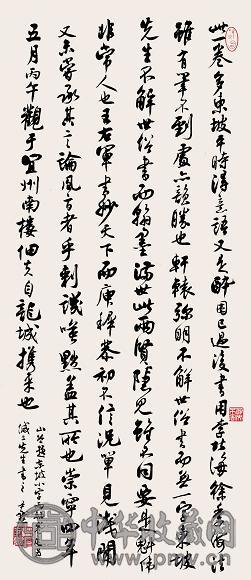 此卷多東坡平時得意語又是醉困已過後書用李北海徐季海法
雖有筆不到處亦韻勝也軒轅彌明不解世俗書而無一字東坡
先生不解世俗書而翰墨滿世此兩賢隱見雖不同要是魁偉
非常人也王右軍書妙天下而庾稚恭初不信況單見淺聞
又未嘗承其言論風旨者乎刺譏嗤黜蓋其所也崇寧四年
五月丙午觀于宜州南樓佃夫自龍城攜來也
山谷題東坡小字
先生書
中华收藏网